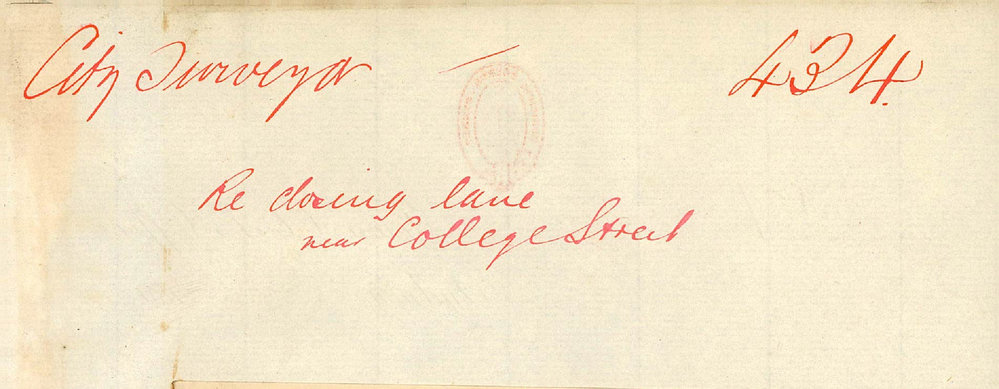 City Surveyor
434.
Re closing lane
near College Street